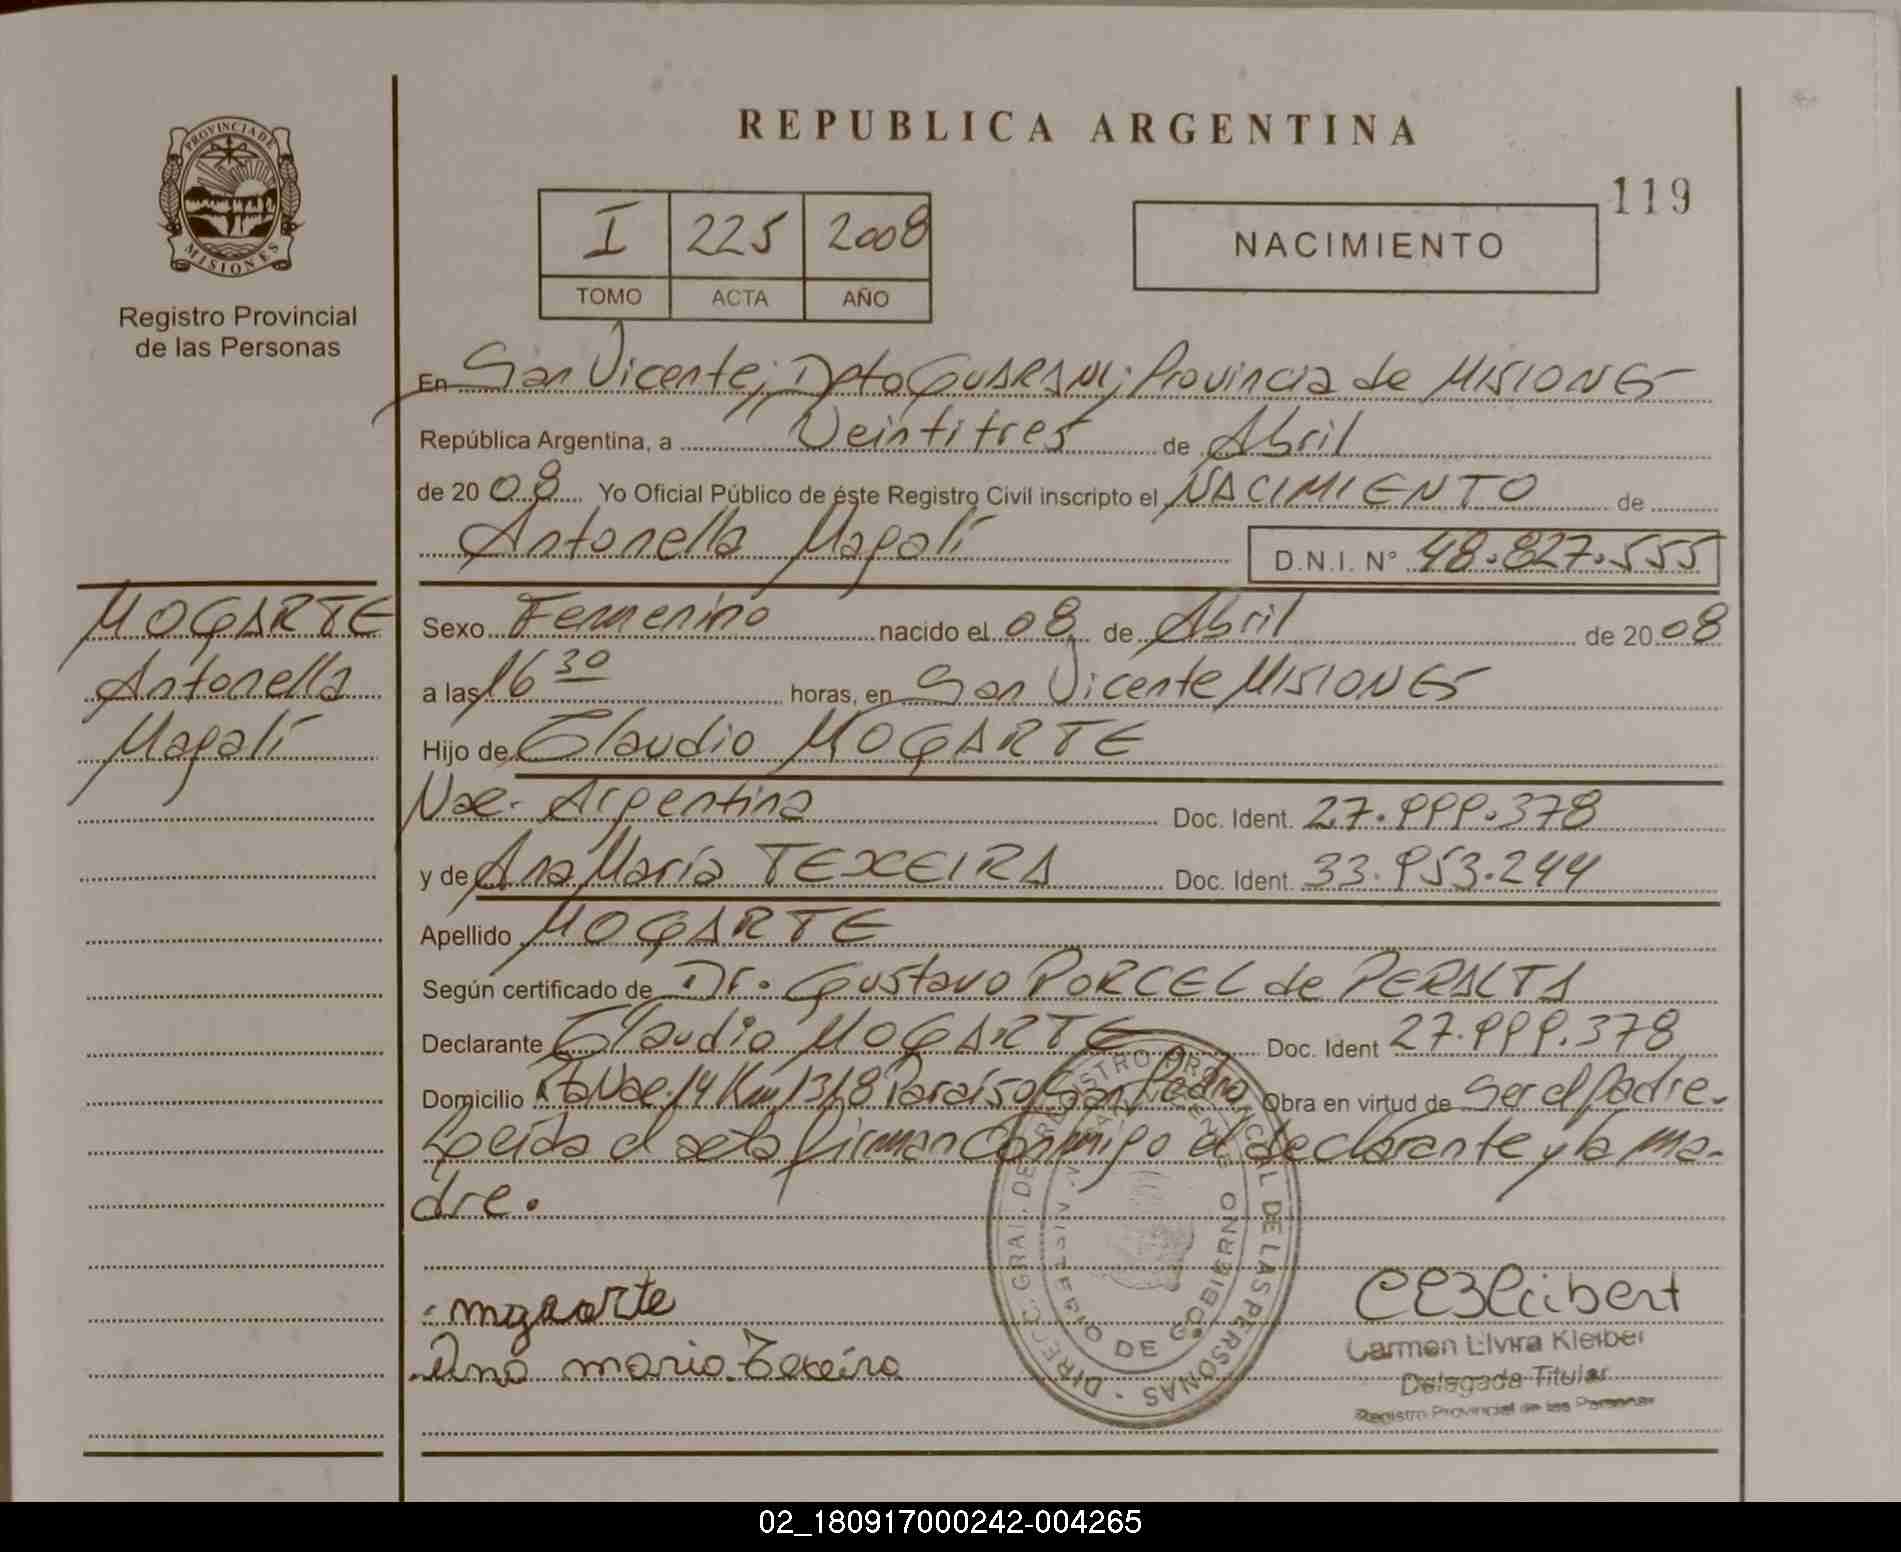 PROVINCIA DE
MISIONES
Registro Provincial
de las Personas
REPUBLICA ARGENTINA
119
I 225 2008
TOMO ACTA AÑO
NACIMIENTO
En San Vicente; Dpto GUARANI; Provincia de MISIONES
República Argentina, a Veintitres de Abril
de 2008 Yo Oficial Público de éste Registro Civil inscripto el NACIMIENTO de
Antonella Magalí D.N.I. N° 48.827.555
MOGARTE
Antonella
Magalí
Sexo Femenino nacido el 08 de Abril de 2008
a las 16 30 horas, en San Vicente MISIONES
Hijo de Claudio MOGARTE
Nac. Argentina Doc. Ident. 27.999.378
y de Ana María TEXEIRA Doc. Ident. 33.953.244
Apellido MOGARTE
Según certificado de Dr. Gustavo PORCEL de PERALTA
Declarante Claudio MOGARTE Doc. Ident 27.999.378
Domicilio Rta Nac. 14 Km 1318 Paraíso San Pedro Obra en virtud de Ser el Padre.
Leída el acta firman Conmigo el declarante y la ma-
dre.
mogarte
Ana maria Texeira
DIRECC. GRAL. DE REGISTRO PROVINCIAL DE LAS PERSONAS
DE GOBIERNO
Carmen Elvira Kleiber
Delegada Titular
Registro Provincial de las Personas
02_180917000242-004265